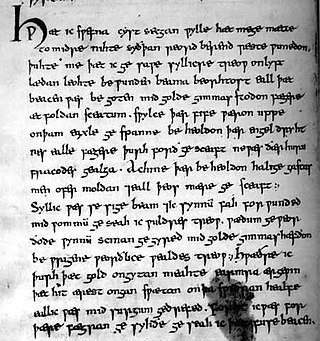 Hwæt ic swefna cyst secgan wylle hæt mege mætte
to midre nihte syðþan reord berend reste wunedon
þuhte me þæt ic ge sawe syllicre treow on lyft
lædan leohte be wunden beama beorhtost eall þæt
beacen wæs be goten mid golde gimmas stodon fægere
æt foldan sceatum swylce þær fife wæron uppe
on þam eaxle ge spanne be heoldon þær engel dryht
nes ealle fægere þurh forð ge sceaft ne wæs ðær huru
fracodes gealga. Ac hine þær be heoldon halige gastas
men ofer moldan ⁊ eall þeos mære ge sceaft:
Syllic wæs se sige beam ⁊ ic synnum fah for wunded
mid wommum ge seah ic wuldres treow. wædum ge weor
ðode wynnum scinan ge gyred mid golde gimmas hæfdon
be wrigene weorðlice wealdes treow hwæðre ic
þurh þæt gold ongytan meahte earmra ærgewin
þæt hit ærest ongan swætan on þa swiðran healfe
eall ic wæs mid surgum gedrefed. ic wæs for
þære fægran ge syhðe ge seah ic fuse beacen.